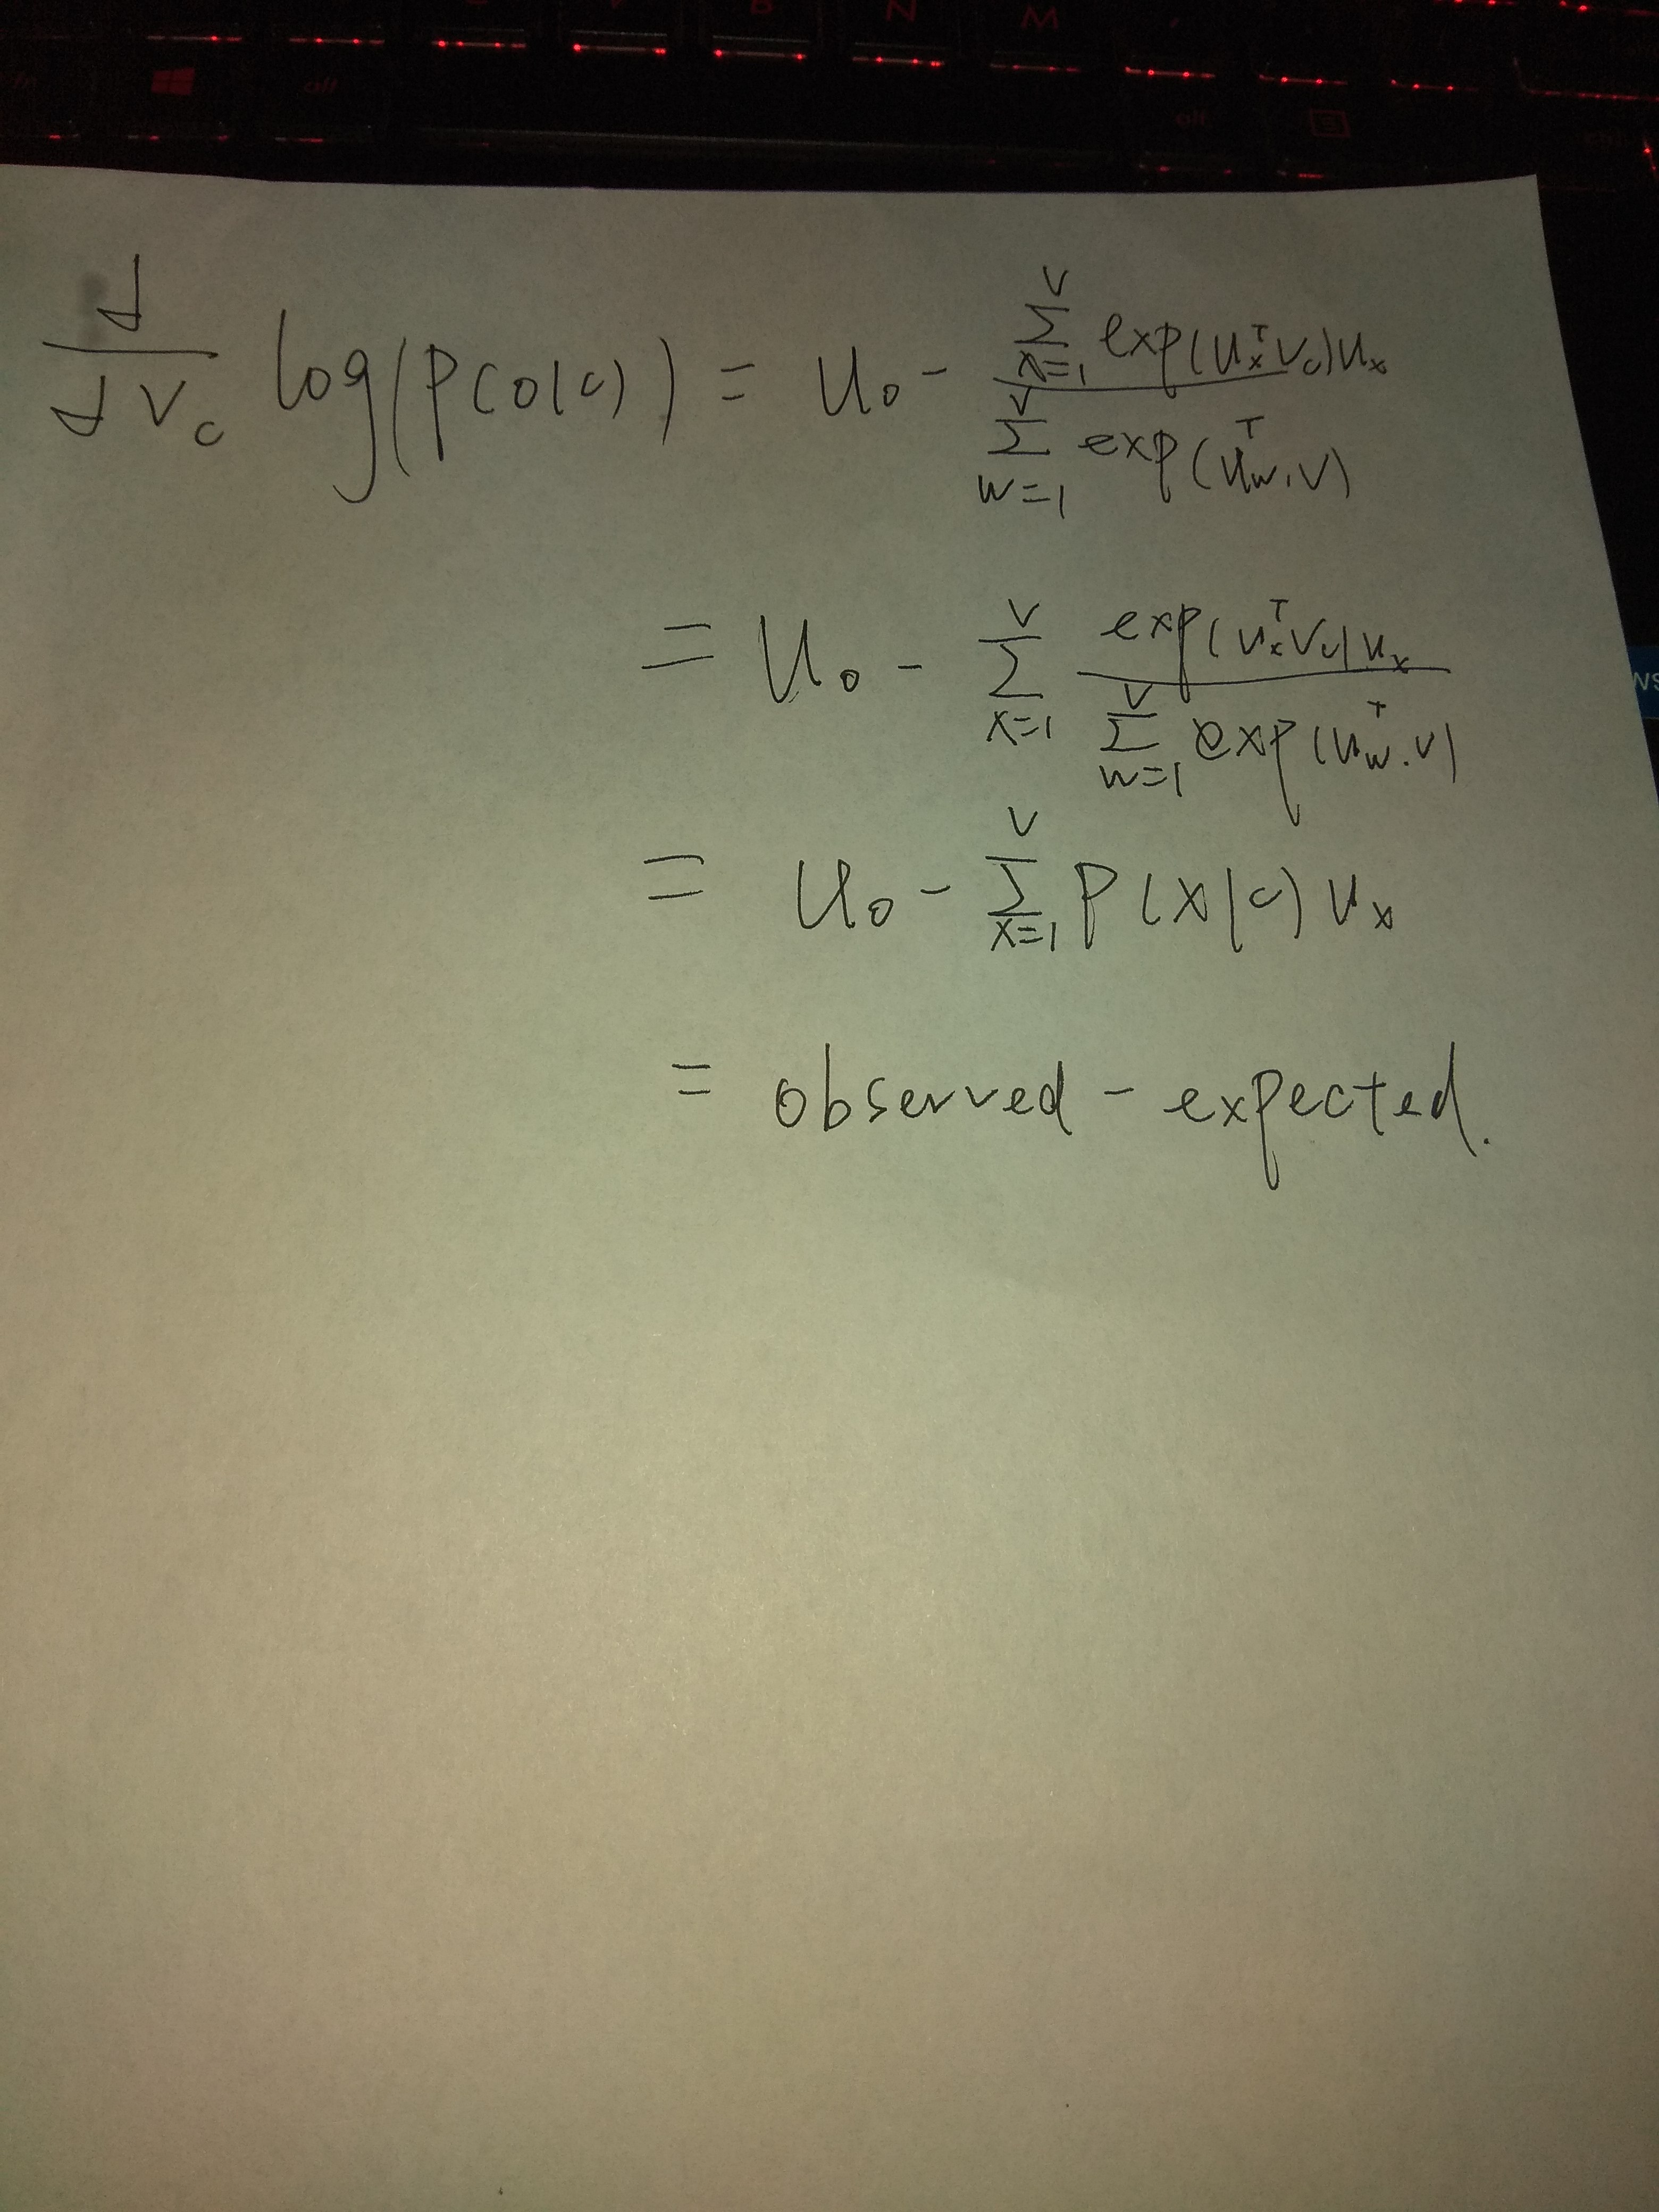 V B N M
fn alt alt
d/dv_c log(p(o|c)) = u_o - (∑_{x=1}^{V} exp(u_x^T v_c) u_x) / (∑_{w=1}^{V} exp(u_w^T . v))
= u_o - ∑_{x=1}^{V} (exp(u_x^T v_c) u_x) / (∑_{w=1}^{V} exp(u_w^T . v))
= u_o - ∑_{x=1}^{V} p(x|c) u_x
= observed - expected.